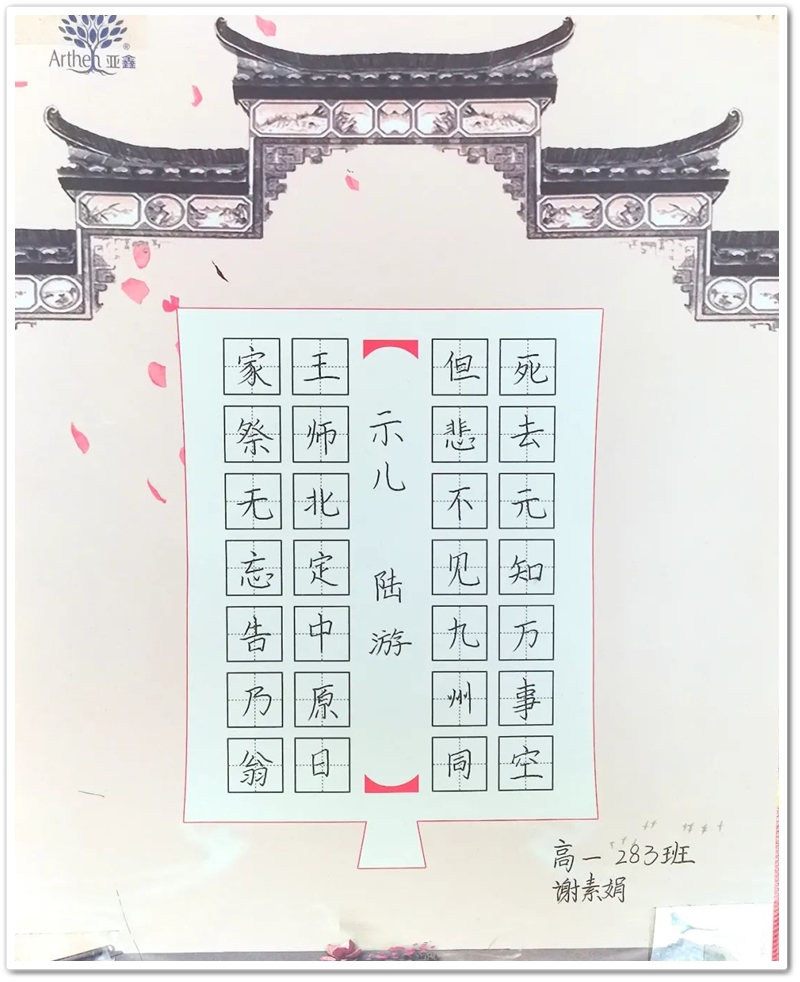 Arthen 亚鑫
死去元知万事空
但悲不见九州同
示儿 陆游
王师北定中原日
家祭无忘告乃翁
高一283班
谢素娟